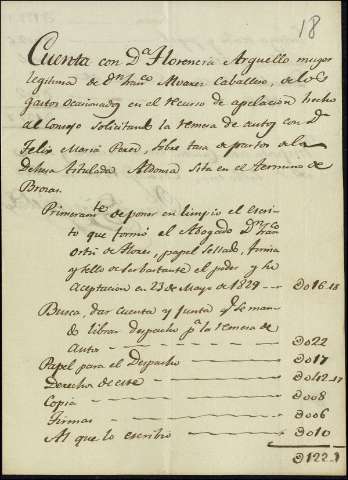 18
Cuenta con D.ª Florencia Arguello muger
legitima de D.n Fran.co Alvarez Caballero, de los
gastos ocacionados en el recurso de apelacion hecho
al Consejo solicitando la remesa de autos con D.n
Felix Maria Perez, sobre tasa de pastos de la
Dehesa titulada Aldonza sita en el termino de
Brozas.
Primeram.te de poner en limpio el escri-
to que formó el Abogado D.n Fran.co
Ortiz de Flores, papel sellado, firma
y sello de bastante el poder y su
Aceptacion en 23 de Mayo de 1829 — 016.18
Busca, dar cuenta y junta q.e se man-
do librar despacho p.a la remesa de
Autos — 022
Papel para el Despacho — 017
Derechos de este — 042.17
Copia — 008
Firmas — 006
Al que lo escribio — 010
0122.1